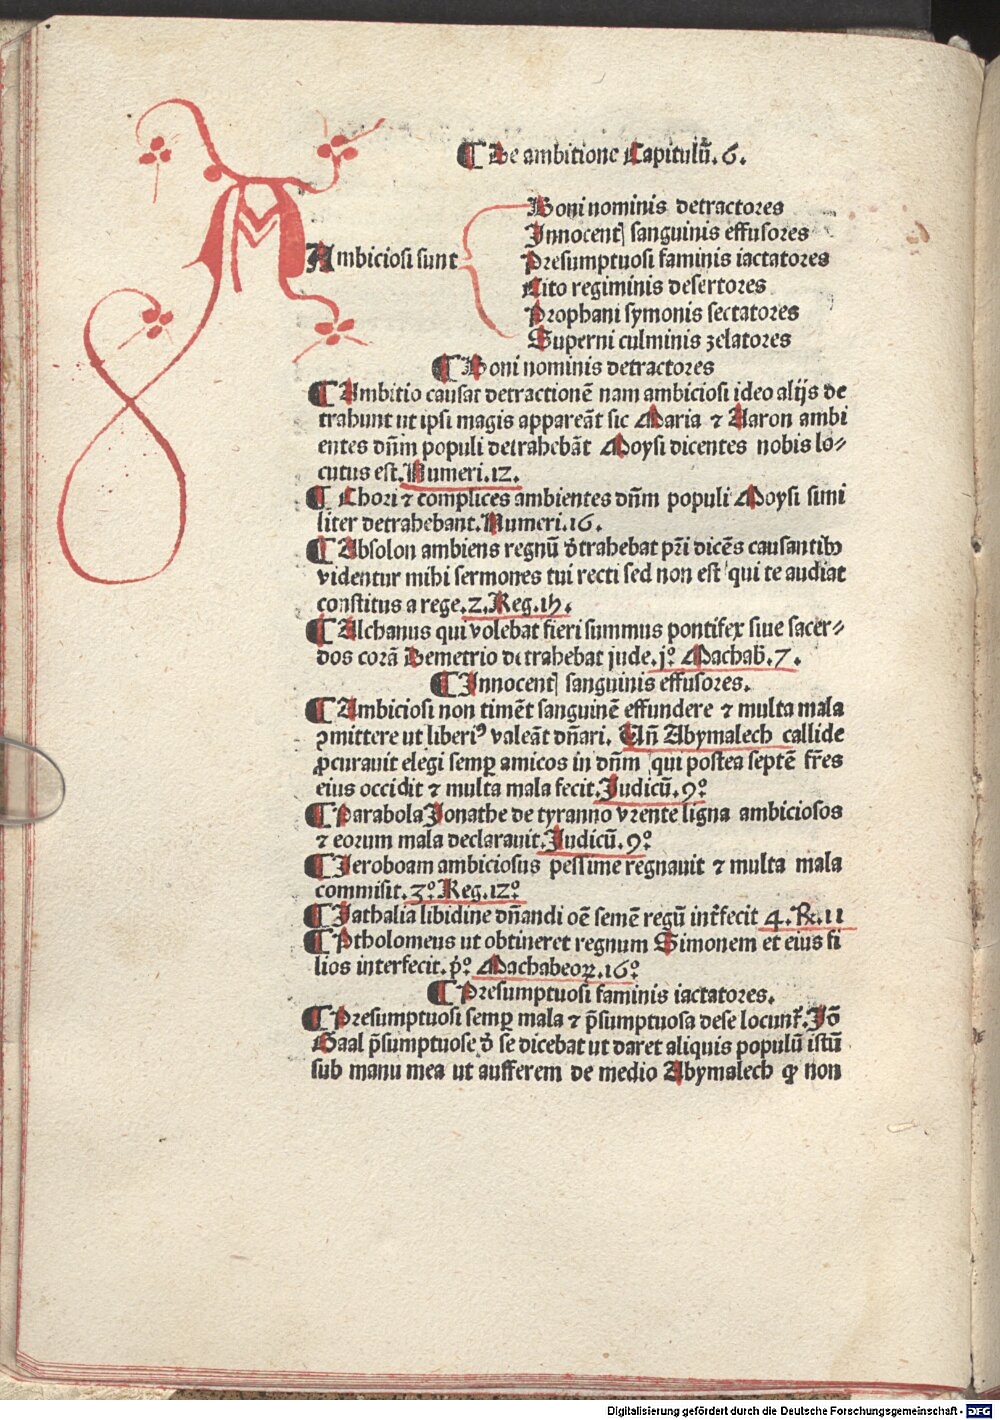 ¶ De ambitione Capitulū. 6.
Boni nominis detractores
Innocentꝭ sanguinis effusores
Ambiciosi sunt Presumptuosi faminis iactatores
Cito regiminis desertores
Prophani symonis sectatores
Superni culminis zelatores
¶ Boni nominis detractores
¶ Ambitio causat detractionē nam ambiciosi ideo alijs de
trahunt ut ipsi magis appareāt sic Maria ⁊ Aaron ambi
entes dn̄m populi detrahebāt Moysi dicentes nobis lo⸗
cutus est. Numeri. 12.
¶ Chori ⁊ complices ambientes dn̄m populi Moysi simi
liter detrahebant. Numeri. 16.
¶ Absolon ambiens regnū d̄trahebat pr̄i dicēs causantibꝫ
videntur mihi sermones tui recti sed non est qui te audiat
constitus a rege. 2. Reg. 15.
¶ Alchanus qui volebat fieri summus pontifex siue sacer⸗
dos corā Demetrio detrahebat jude. jº Machab̄. 7.
¶ Innocentꝭ sanguinis effusores.
¶ Ambiciosi non timēt sanguinē effundere ⁊ multa mala
ꝯmittere ut liberiꝰ valeāt dn̄ari. Vn̄ Abymalech callide
ꝓcurauit elegi semꝑ amicos in dn̄m qui postea septē fr̄es
eius occidit ⁊ multa mala fecit. Judicū. 9º
¶ Parabola Jonathe de tyranno vrente ligna ambiciosos
⁊ eorum mala declarauit. Judicū. 9º
¶ Jeroboam ambiciosus pessime regnauit ⁊ multa mala
commisit. 3º Reg. 12º
¶ Jathalia libidine dn̄andi oē semē regū int̄fecit 4. Re. 11
¶ Ptholomeus ut obtineret regnum Simonem et eius fi
lios interfecit. p̄º Machabeoꝝ. 16º
¶ Presumptuosi faminis iactatores.
¶ Presumptuosi semꝑ mala ⁊ p̄sumptuosa de se locunt᷑. Jō
Gaal p̄sumptuose d̄ se dicebat ut daret aliquis populū istū
sub manu mea ut aufferem de medio Abymalech ꝙ non
Digitalisierung gefördert durch die Deutsche Forschungsgemeinschaft - DFG